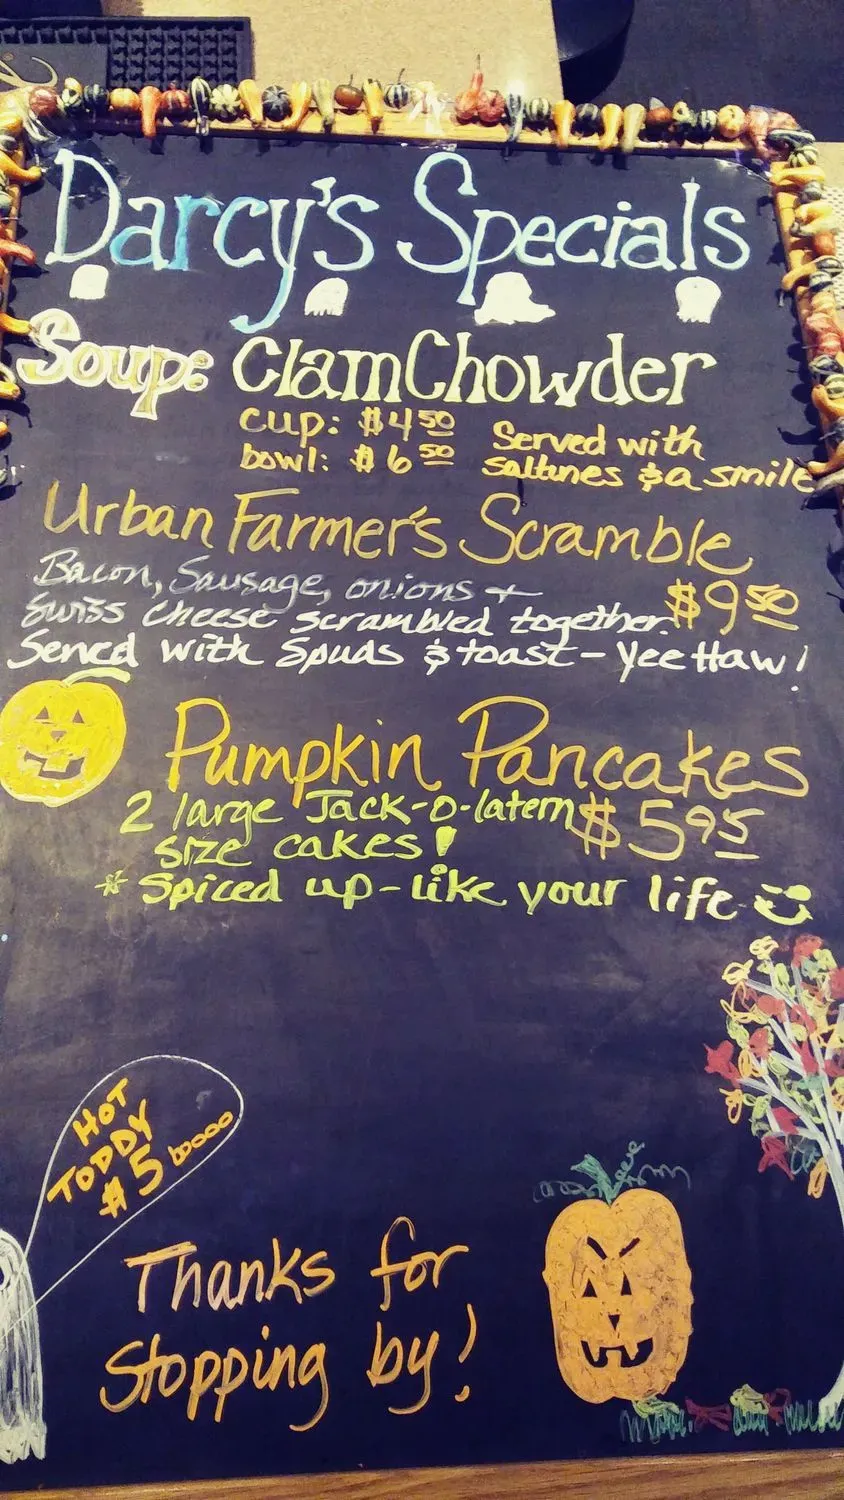 Darcy's Specials
Soup: Clam Chowder
cup: $4 50
bowl: $6 50
Served with
saltines & a smile
Urban Farmer's Scramble
Bacon, Sausage, onions +
Swiss cheese scrambled together.
$9 50
Served with Spuds & toast - Yee Haw!
Pumpkin Pancakes
2 large Jack-o-latern
size cakes!
$5 95
* Spiced up - like your life
HOT
TODDY
$5 boooo
Thanks for
Stopping by!